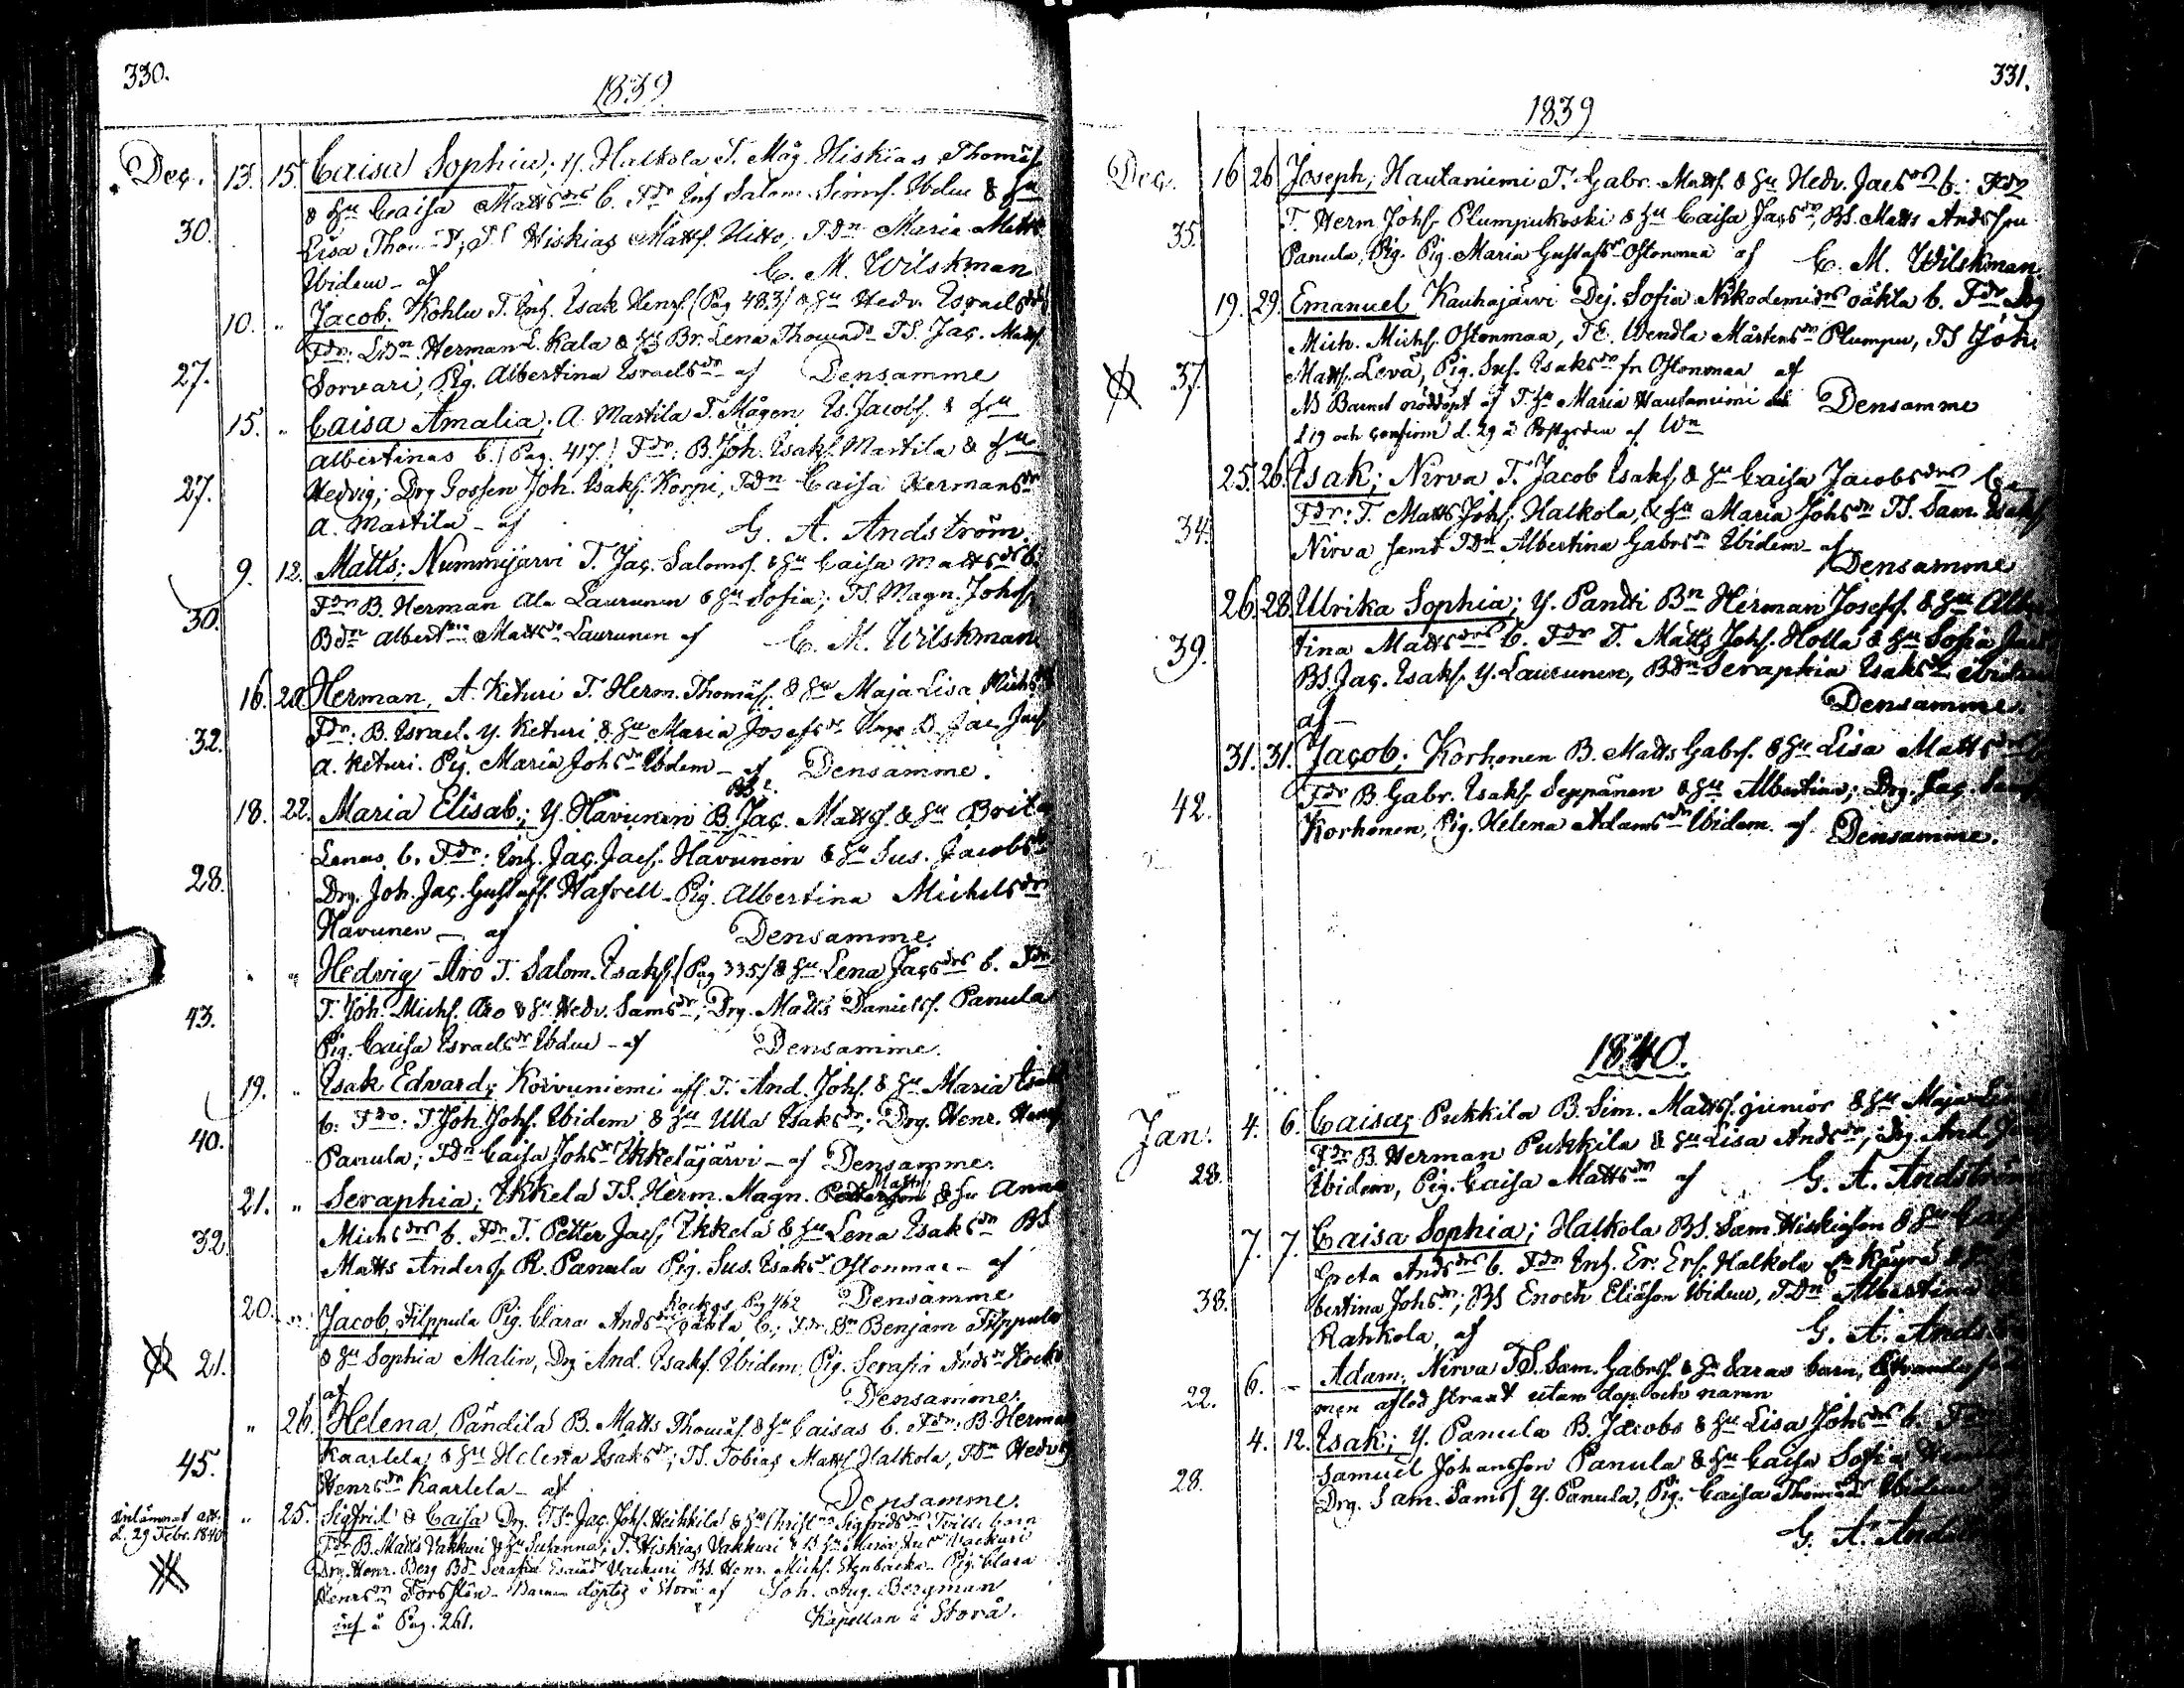 330.
1839
Dec. 13. 15. Caisa Sophia; Y. Halkola T. Måg. Hiskias Thomæs.
& Hu Caisa Mattsdrs b. Fdr Inh Salom. Simsf. Ibdm & Hu
30. Lisa Thom Hiskias Mattsf. Hitto, TDn Maria Matts
Ibidem - af C. M. Wilskman
10. " Jacob, Kohlu T. Inh. Isak Henrsf. (Pag 483) & Hu Hedv. Israelsdrs
Fdr: Herman L. Kala & Hu Br. Lena Thomasdr TS. Jac. Mattsf.
27. Sorvari, Pig. Albertina Israelsdr af Densamme
15. " Caisa Amalia; A. Martila T. Mågen Is. Jacobsf. & Hu
Albertinas b. (Pag. 417.) Fdr: B. Joh. Isaksf. Martila & Hu
27. Hedvig; Drg Gossen Joh. Isaksf. Korpi, TDn Caisa Hermansdr
A. Martila - af G. A. Andström.
9. 12. Matts; Nummijärvi T. Jac. Salomsf. & Hu Caisa Mattsdrs b.
30. Fdr B. Herman Ala Laurunen & Hu Sofia; TS. Magn. Johsf.
BDn Albertina Mattsdr Laurunen af C. M. Wilskman
16. 20 Herman, A. Keturi T. Herm. Thomæsf. & Hu Maja Lisa Michsdrs
32. Fdr: B. Israel Y. Keturi & Hu Maria Josefsdr Jac Jacsf
A. Keturi. Pig. Maria Johsdr Ibdem - af Densamme.
18. 22. Maria Elisab.; Y. Havunen B. Jac. Mattsf. & Hu Brita
Lenas b. Fdr: Inh. Jac. Jacsf. Havunen & Hu Sus. Jacobsdr
28. Drg. Joh. Jac. Gustafsf. Hafrell - Pig. Albertina Michelsdr
Havunen - af Densamme.
" " Hedvig Aro T. Salom. Isaksf. (Pag 335) & Hu Lena Jacsdrs b. Fdr
43. T. Joh. Michsf. Aro & Hu Hedv. Samsdr; Drg. Matts Danielsf. Panula
Pig. Caisa Israelsdr Ibdm - af Densamme.
19. " Isak Edvard; Koivuniemi T. And. Johsf. & Hu Maria Isaks
b: Fdr: T Joh. Johsf. Ibidem & Hu Ulla Isaksdr; Drg. Henr. Henrsf
40. Panula; TDn Caisa Johsdr Ikkeläjärvi - af Densamme.
21. " Seraphia; Ikkelä TS. Herm. Magn. Mattsf. & Hu Anna
Michsdrs b. Fdr T. Petter Jacsf. Ikkelä & Hu Lena Isaksdr BS
32. Matts Andersf. R. Panula Pig. Sus. Isaksdr Ostonmaa - af
Densamme
20. " Jacob, Filppula Pig. Clara Andsdrs Kockos, Pag 462 oäkta b.; Fdr Bn Benjam Filppula
21. & Hu Sophia Malin, Drg And. Isaksf. Ibidem. Pig. Serafia Andsdr Kocko
af Densamme.
" 26. Helena, Pändilä B. Matts Thomæsf. & Hu Caisas b. Fdr: B. Herman
45. Kaarlela & Hu Helena Isaksdr; TS. Tobias Mattsf. Halkola, TDn Hedvig
Henrsdr Kaarlela - af Densamme.
Inlämnat att. d. 29 Febr. 1840
" 25. Sigfrid & Caisa Drg. TSn Jac. Johsf. Heikkilä & Hu Christna Sigfredsdrs Tvilli. barn
Fdr B. Matts Vakkuri & Hu Susanna; T. Hiskias Vakkuri & Hu Maria Vackuri
Drg. Henr. Berg BDn Serafia Esaiædr Vackuri BS. Henr. Michsf. Stenbacka - Pig. Clara
Henrsdr Forsslin - Barnen döptes i Storå af Joh. Aug. Bergman
inf å Pag. 261. Kapellan i Storå.
331.
1839
Dec. 16 26 Joseph; Hautaniemi T. Gabr. Mattsf. & Hu Hedv. Jacsdrs b. Fdr
35. T. Herm Johsf. Plumpukoski & Hu Caisa Jacsdr, BS. Matts Andsson
Panula, Pig. Pig. Maria Gustafsdr Ostonmaa af C. M. Wilskman.
19. 29. Emanuel Kauhajärvi Dej. Sofia Nikodemidrs oäkta b. Fdr Drg
Mich. Michsf. Ostonmaa, TE. Wendla Mårtensdr Plumpu, TS Joh.
37. Mattsf. Levä, Pig. Sus. Isaksdr fr Ostonmaa af
NB Barnet nöddöpt af T. Hu Maria Hautaniemi Densamme
d 19 och confirm d. 29 å Pstgården af Wn
25. 26. Isak; Nirva T. Jacob Isaksf. & Hu Caisa Jacobsdrs b.
34. Fdr: T. Matts Johsf. Halkola, & Hu Maria Johsdr TS. Sam. Isaksf
Nirva samt TDn Albertina Gabrsdr Ibidem - af
Densamme
26. 28. Ulrika Sophia; Y. Pantti Bn Herman Josefsf. & Hu Alber
39. tina Mattsdrs b. Fdr T. Matts Johsf. Holla & Hu Sofia
BS Jac. Isaksf. Y. Laurunen, BDn Seraphia Isaksdr Ibidem
af - Densamme.
31. 31. Jacob; Korhonen B. Matts Gabrsf. & Hu Lisa Mattsdrs
42. Fdr B. Gabr. Isaksf. Seppänen & Hu Albertina; Drg. Jac. Sams
Korhonen, Pig. Helena Adamsdr Ibidem. af Densamme.
1840.
Jan. 4. 6. Caisa; Pukkila B. Sim. Mattsf. junior & Hu Maja Lisa
Fdr B. Herman Pukkila & Hu Lisa Andsdr; Drg. And.
28. Ibidem, Pig. Caisa Mattsdr af G. A. Andström
7. 7. Caisa Sophia; Halkola BS. Sam. Hiskiæson & Hu
Greta Andsdrs b. Fdr Inh. Er. Ersf. Halkola
38. bertina Johsdr; BS Enoch Eliæson Ibidem, TDn Albertina
Rahkola, af G. A. Andström
6. - Adam, Nirva TS. Sam. Gabrsf. & Hu Saras barn,
22. men afled straxt utan dop och namn
4. 12. Isak; Y. Panula B. Jacobs & Hu Lisa Johsdrs b. Fdr
Samuel Johansson Panula & Hu Caisa Sofia
28. Drg. Sam. Samsf Y. Panula, Pig. Caisa Thomædr Ibidem
G. A. Andström